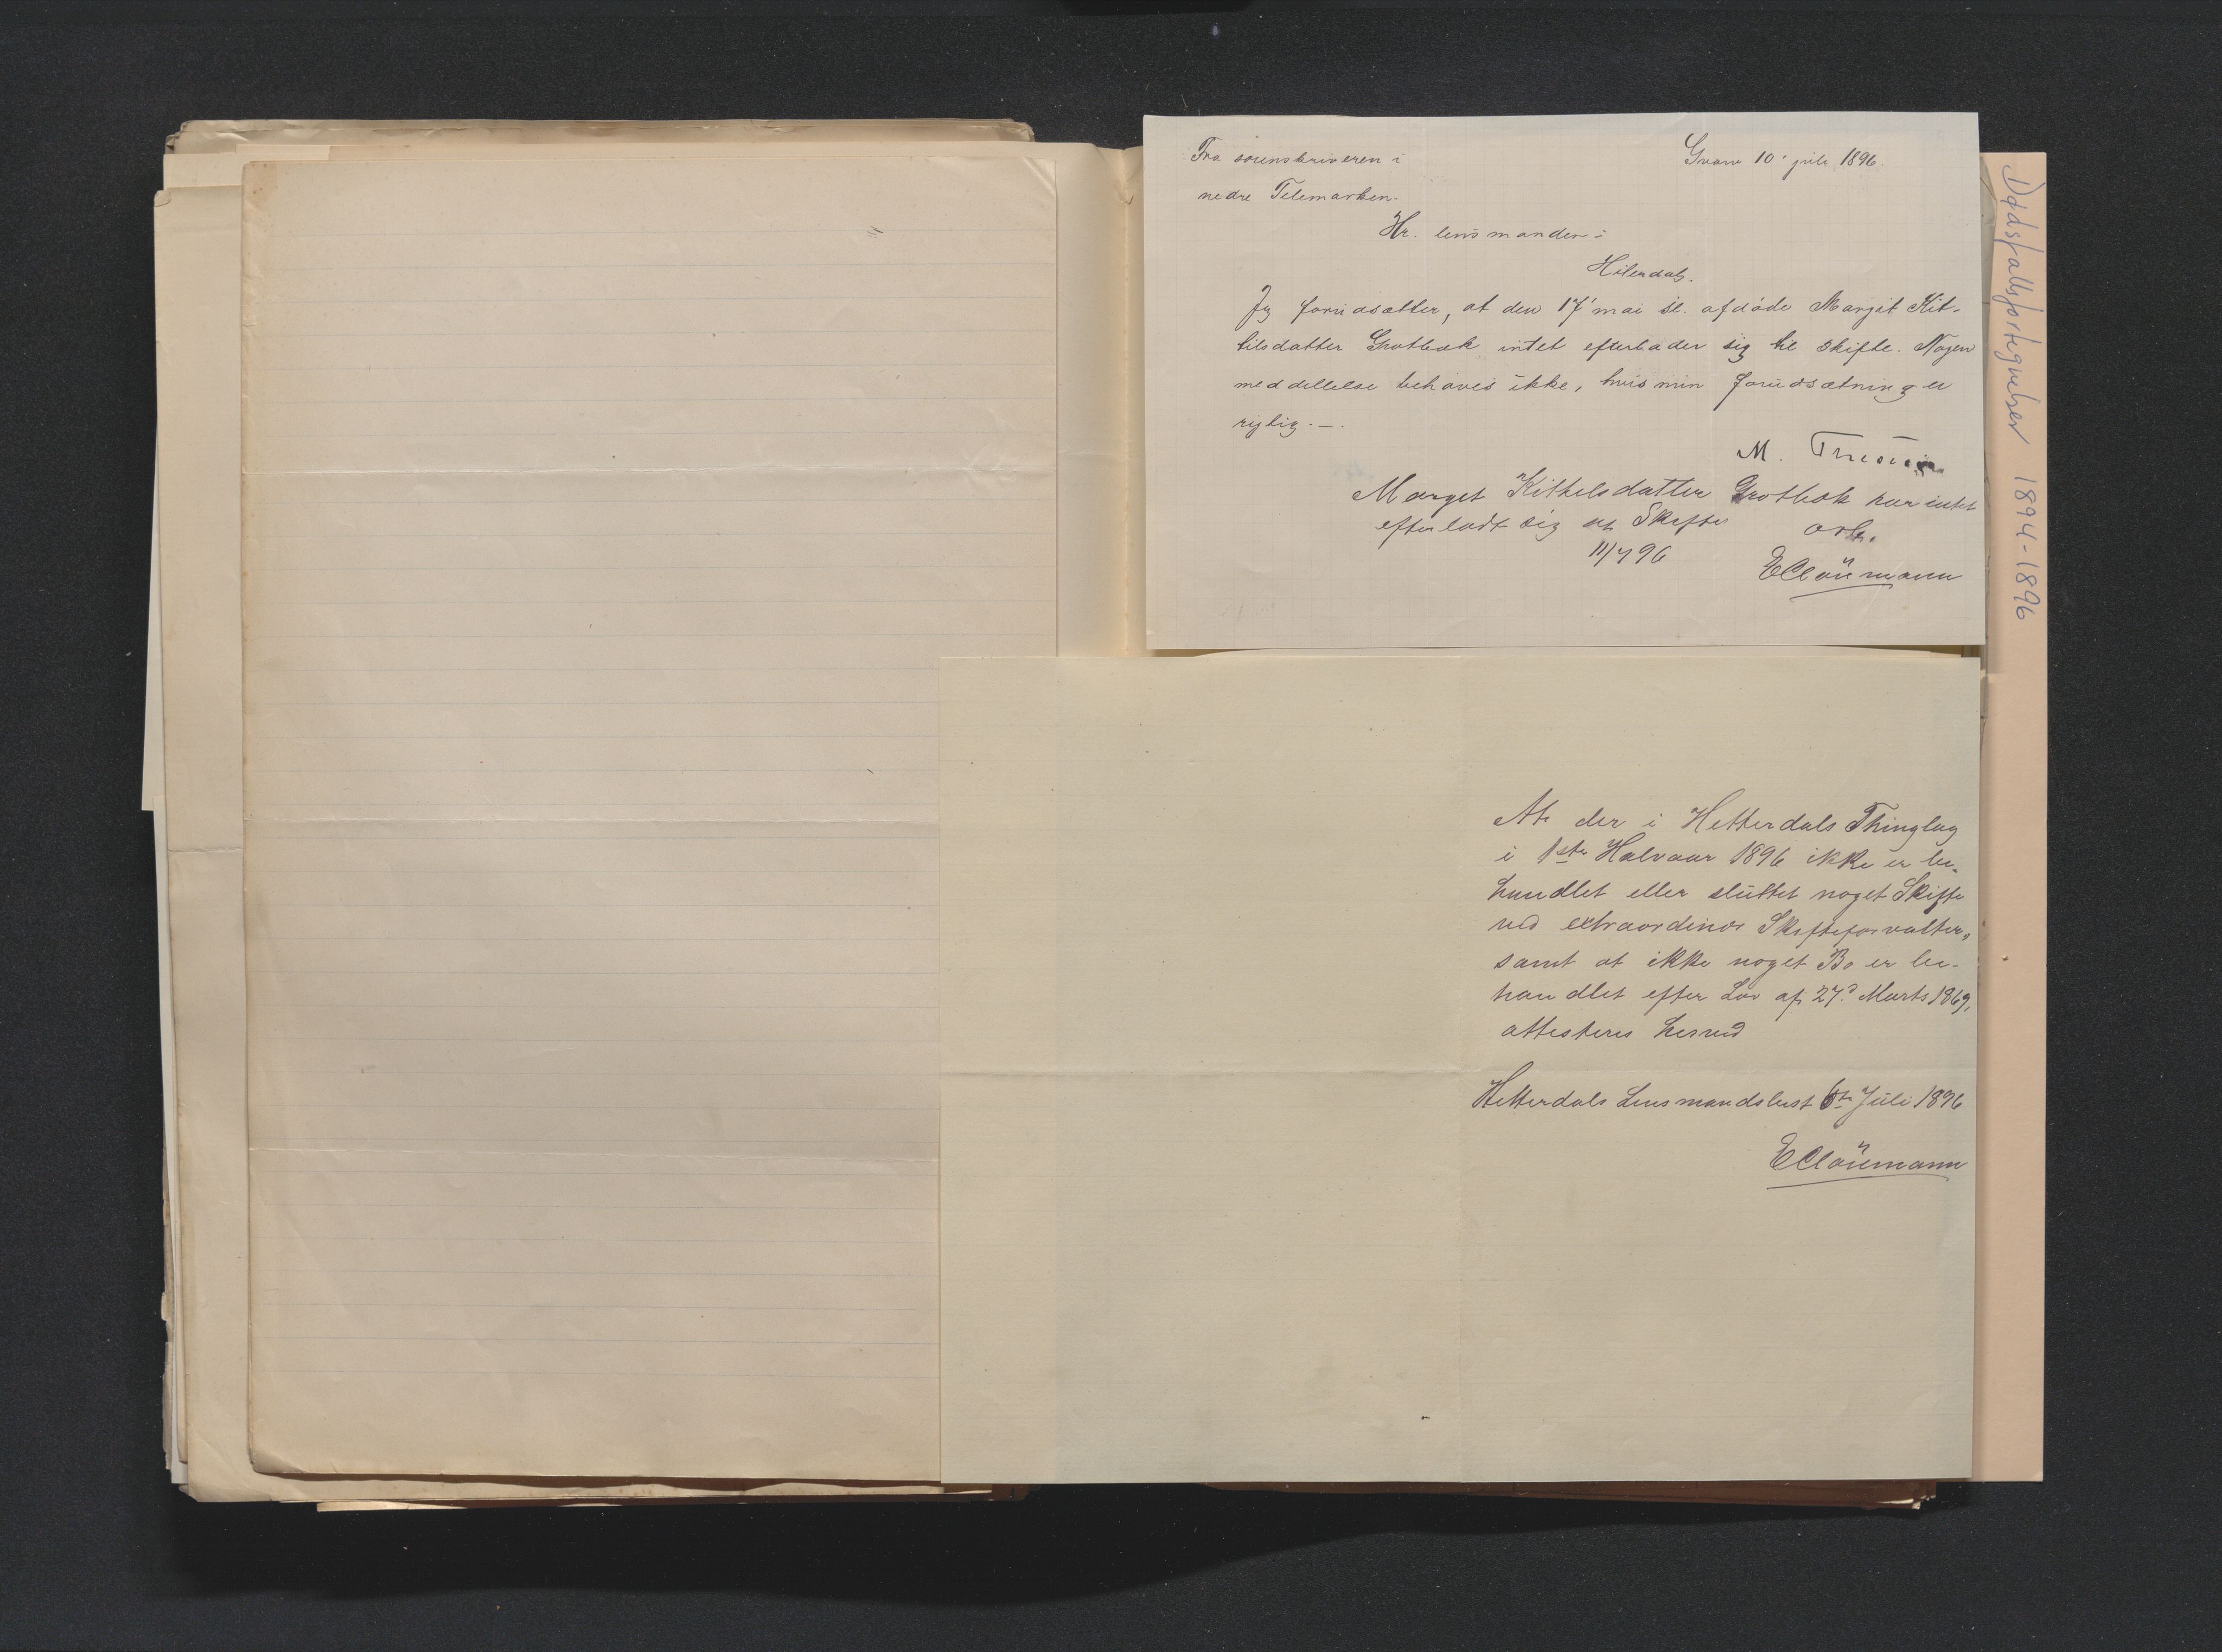 Fra sorenskriveren i
nedre Telemarken.
Gvarv 10' juli 1896.
Hr. lensmanden i
Hiterdal.
Jeg forudsætter, at den 17' mai sl. afdöde Margit Kit-
tilsdatter Grotbæk intet efterlader sig til skifte. Nogen
meddellelse behöves ikke, hvis min forudsætning er
rigtig. —.
M.
Marget Kithelsdatter Grotbæk har intet
efterladt sig at Skifte
11/7 96
EClaümann
At der i Hetterdals Thinglag
i 1ste Halvaar 1896 ikke er be-
handlet eller slüttet noget Skifte
ved extraordinær Skifteforvalter,
samt at ikke noget Bo er be-
handlet efter Lov af 27d Marts 1869,
attesteres herved
Hetterdals Lensmandsbest 6te Jüli 1896
EClaümann
Dødsfallsfortegnelser 1894-1896